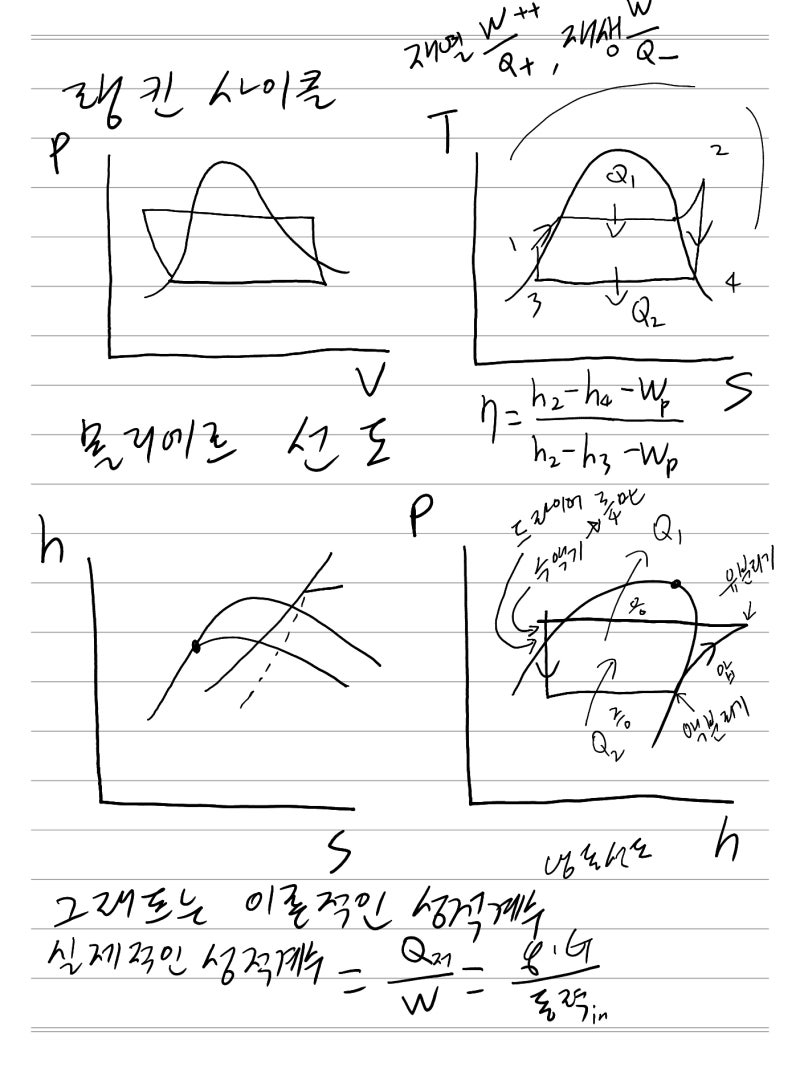 재열 W++/Q+, 재생 W/Q-
랭킨 사이클
P
V
T
Q₁
2
1
3
4
Q₂
S
η = (h₂-h₄-Wp)/(h₂-h₃-Wp)
몰리에르 선도
h
S
P
드라이어
수액기
Q₁
유분리기
응
압
액분리기
Q₂
h
냉동선도
그래프는 이론적인 성적계수
실제적인 성적계수 = Q저/W = q·G/동력in